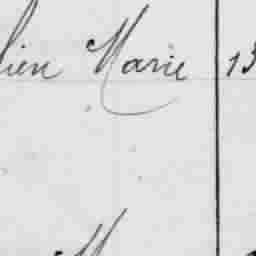 lien Marie 13